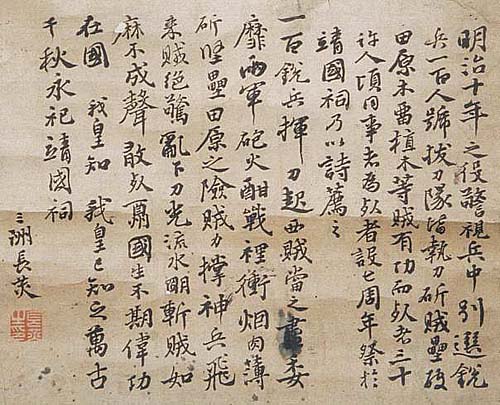 明治十年之役警視兵中別選銳
兵一百人號拔刀隊皆執刀斫賊壘破
田原木留植木等賊有功而死者三十
許人頃同事者為死者設七周年祭於
靖國祠乃以詩薦之
一百銳兵揮刀起西賊當之盡委
靡兩軍砲火酣戰裡衝烟肉薄
斫堅壘田原之險賊力撐神兵飛
來賊絕驚亂下刀光流水明斬賊如
麻不成聲敢死爲國生不期偉功
在國我皇知我皇已知之萬古
千秋永祀靖國祠
三洲長炗